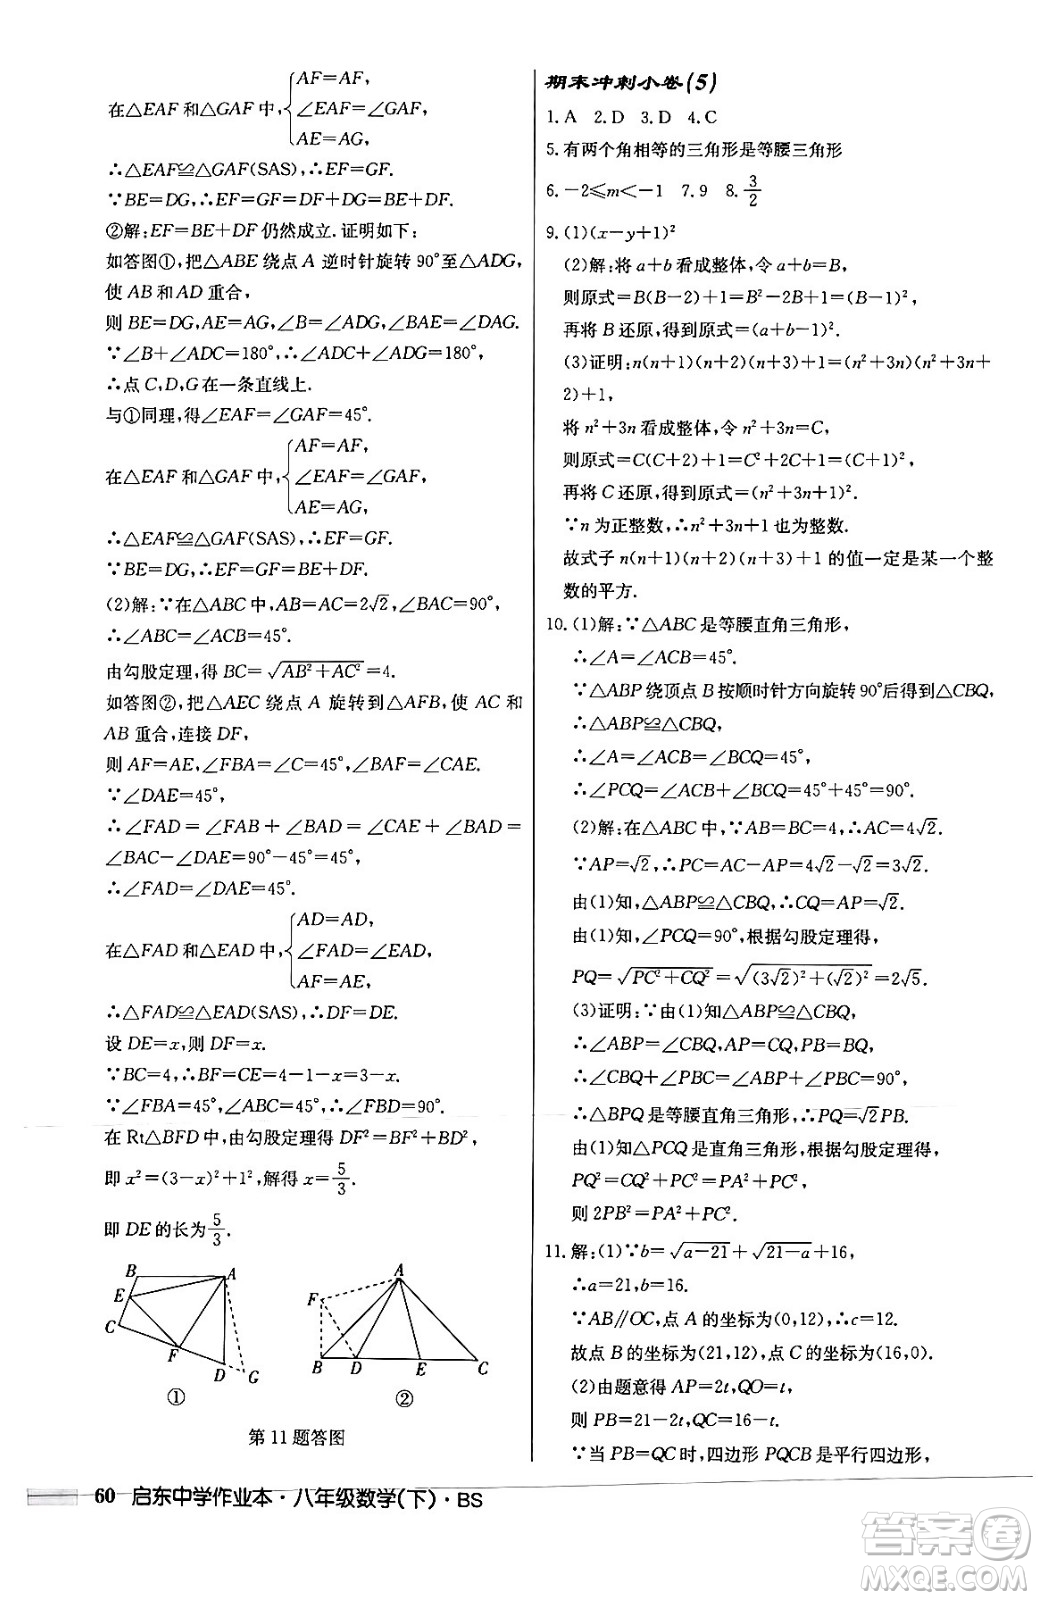 在△EAF 和△GAF 中,{AF=AF,
∠EAF=∠GAF,
AE=AG,
∴△EAF≌△GAF(SAS),∴EF=GF.
∵BE=DG,∴EF=GF=DG+DF=BE+DF.
②解:EF=BE+DF 仍然成立.证明如下:
如答图①,把△ABE 绕点 A 逆时针旋转 90°至△ADG,
使 AB 和 AD 重合,
则 BE=DG,AE=AG,∠B=∠ADG,∠BAE=∠DAG.
∵∠B+∠ADC=180°,∴∠ADC+∠ADG=180°,
∴点 C,D,G 在一条直线上.
与①同理,得∠EAF=∠GAF=45°.
在△EAF 和△GAF 中,{AF=AF,
∠EAF=∠GAF,
AE=AG,
∴△EAF≌△GAF(SAS),∴EF=GF.
∵BE=DG,∴EF=GF=DG+DF=BE+DF.
(2)解:∵在△ABC 中,AB=AC=2√2,∠BAC=90°,
∴∠ABC=∠ACB=45°.
由勾股定理,得 BC=√(AB²+AC²)=4.
如答图②,把△AEC 绕点 A 旋转到△AFB,使 AC 和
AB 重合,连接 DF,
则 AF=AE,∠FBA=∠C=45°,∠BAF=∠CAE.
∵∠DAE=45°,
∴∠FAD=∠FAB+∠BAD=∠CAE+∠BAD=
∠BAC-∠DAE=90°-45°=45°.
∴∠FAD=∠DAE=45°.
在△FAD 和△EAD 中,{AD=AD,
∠FAD=∠EAD,
AF=AE,
∴△FAD≌△EAD(SAS),∴DF=DE.
设 DE=x,则 DF=x.
∵BC=4,∴BF=CE=4-1-x=3-x.
∵∠FBA=45°,∠ABC=45°,∴∠FBD=90°.
在 Rt△BFD 中,由勾股定理得 DF²=BF²+BD²,
即 x²=(3-x)²+1²,解得 x=5/3.
即 DE 的长为5/3.
B A E C F D G
①
A F B D E C
②
第 11 题答图
60 启东中学作业本·八年级数学(下)·BS
期末冲刺小卷(5)
1.A 2.D 3.D 4.C
5.有两个角相等的三角形是等腰三角形
6.-2≤m<-1 7.9 8.3/2
9.(1)(x-y+1)²
(2)解:将 a+b 看成整体,令 a+b=B,
则原式=B(B-2)+1=B²-2B+1=(B-1)²,
再将 B 还原,得到原式=(a+b-1)².
(3)证明:n(n+1)(n+2)(n+3)+1=(n²+3n)(n²+3n+
2)+1,
将 n²+3n 看成整体,令 n²+3n=C,
则原式=C(C+2)+1=C²+2C+1=(C+1)²,
再将 C 还原,得到原式=(n²+3n+1)².
∵n 为正整数,∴n²+3n+1 也为整数.
故式子 n(n+1)(n+2)(n+3)+1 的值一定是某一个整
数的平方.
10.(1)解:∵△ABC 是等腰直角三角形,
∴∠A=∠ACB=45°.
∵△ABP 绕顶点 B 按顺时针方向旋转 90°后得到△CBQ,
∴△ABP≌△CBQ,
∴∠A=∠BCQ=45°,
∴∠PCQ=∠ACB+∠BCQ=45°+45°=90°.
(2)解:在△ABC 中,∵AB=BC=4,∴AC=4√2.
∵AP=√2,∴PC=AC-AP=4√2-√2=3√2.
由(1)知,△ABP≌△CBQ,∴CQ=AP=√2.
由(1)知,∠PCQ=90°,根据勾股定理得,
PQ=√(PC²+CQ²)=√((3√2)²+(√2)²)=2√5.
(3)证明:∵由(1)知△ABP≌△CBQ,
∴∠ABP=∠CBQ,AP=CQ,PB=BQ,
∴∠CBQ+∠PBC=∠ABP+∠PBC=90°,
∴△BPQ 是等腰直角三角形,∴PQ=√2PB.
由(1)知△PCQ 是直角三角形,根据勾股定理得,
PQ²=CQ²+PC²=PA²+PC²,
则 2PB²=PA²+PC².
11.解:(1)∵b=√(a-21)+√(21-a)+16,
∴a=21,b=16.
∵AB∥OC,点 A 的坐标为(0,12),∴c=12.
故点 B 的坐标为(21,12),点 C 的坐标为(16,0).
(2)由题意得 AP=2t,QO=t,
则 PB=21-2t,QC=16-t.
∵当 PB=QC 时,四边形 PQCB 是平行四边形,
答案卷
MXQE.COM